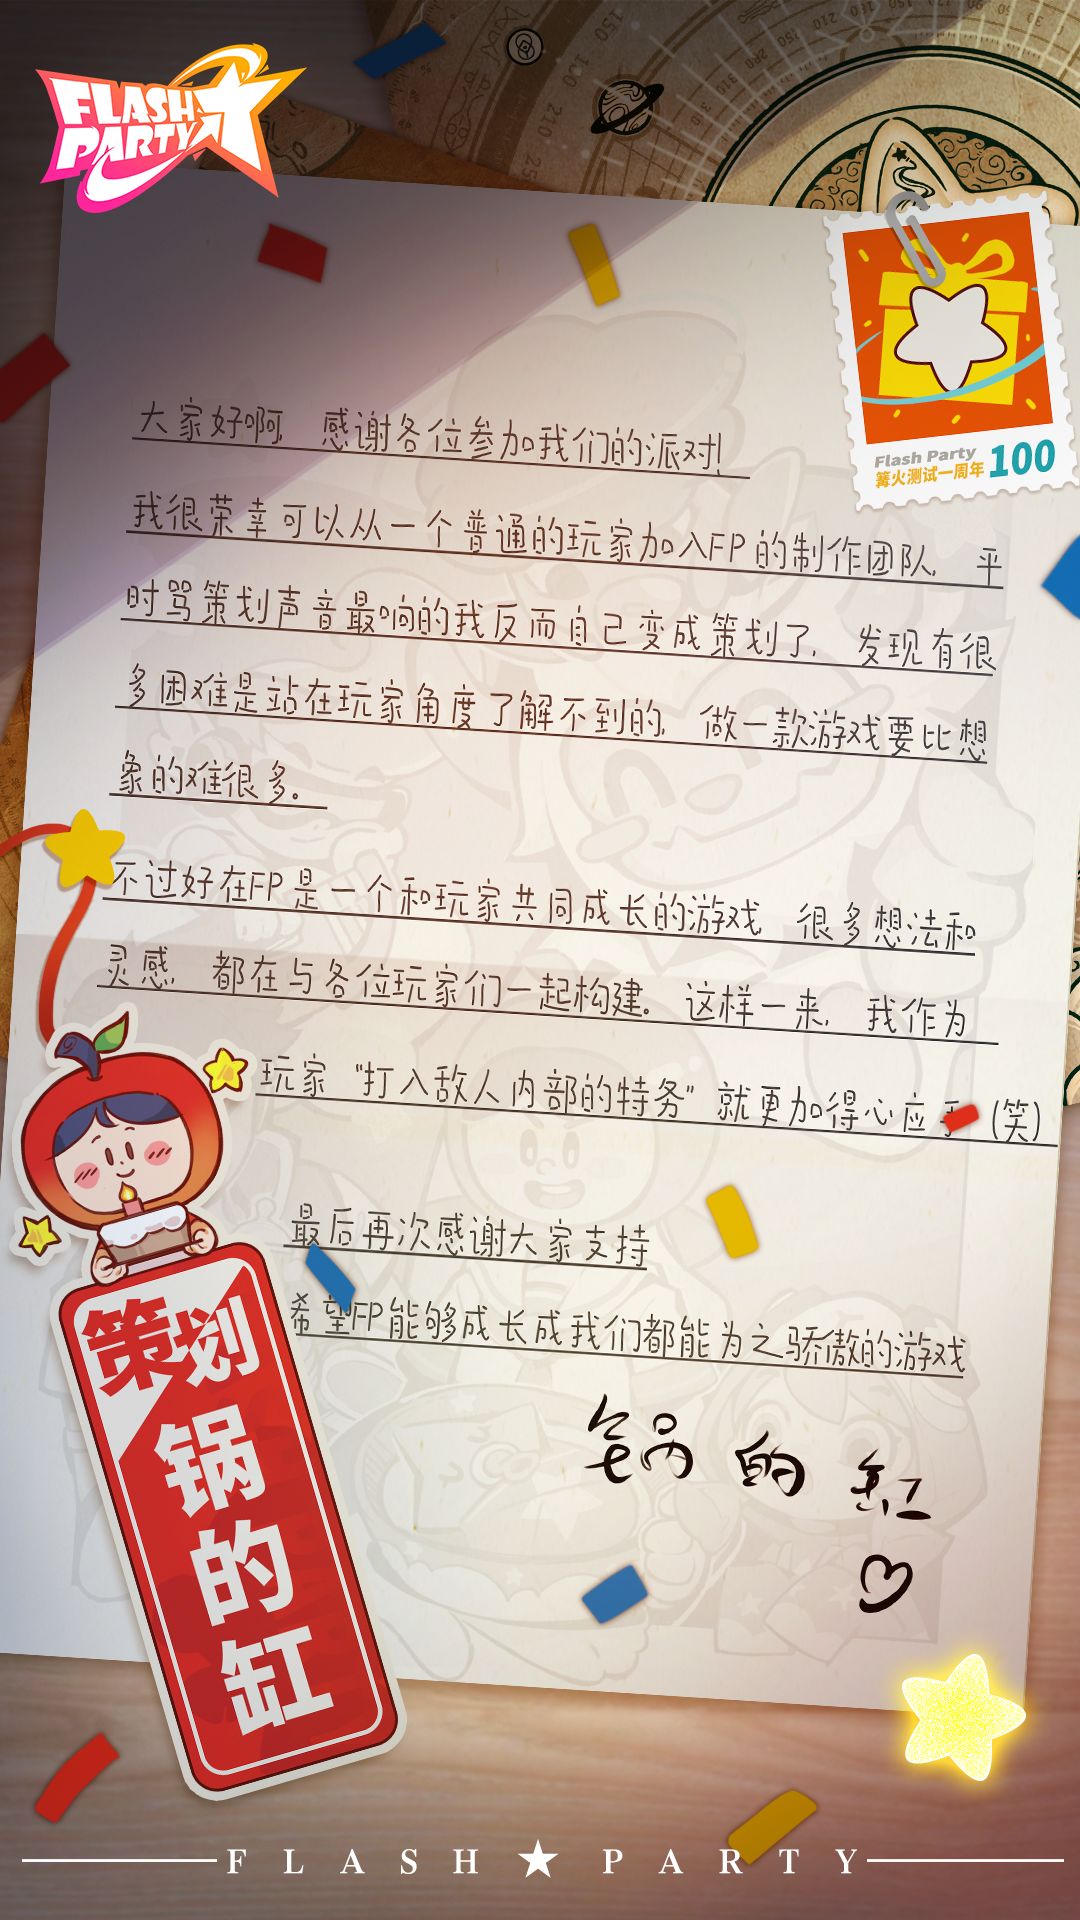 FLASH
PARTY
Flash Party
篝火测试一周年 100
大家好啊, 感谢各位参加我们的派对!
我很荣幸可以从一个普通的玩家加入FP的制作团队, 平
时骂策划声音最响的我反而自己变成策划了, 发现有很
多困难是站在玩家角度了解不到的, 做一款游戏要比想
象的难很多。
不过好在FP是一个和玩家共同成长的游戏 很多想法和
灵感, 都在与各位玩家们一起构建。这样一来, 我作为
玩家“打入敌人内部的特务”就更加得心应手 (笑)
最后再次感谢大家支持
希望FP能够成长成我们都能为之骄傲的游戏
锅的缸
策划
锅的缸
FLASH★PARTY